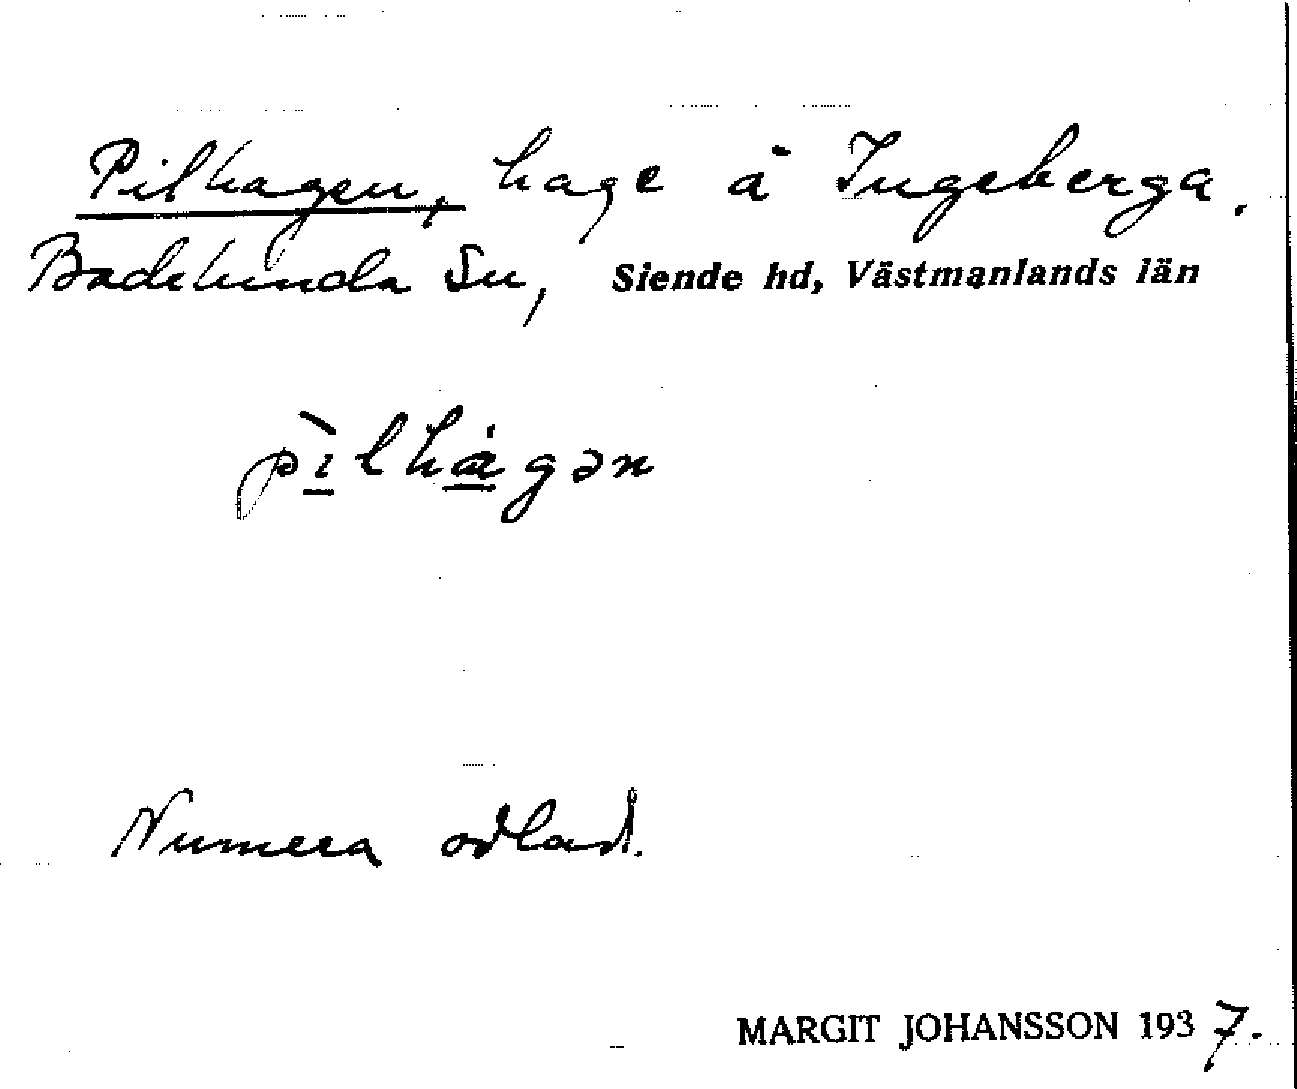 Pilhagen, hage å Ingeberga.
Badelunda sn, Siende hd, Västmanlands län
pìlhágən
Numera odlad.
MARGIT JOHANSSON 1937.